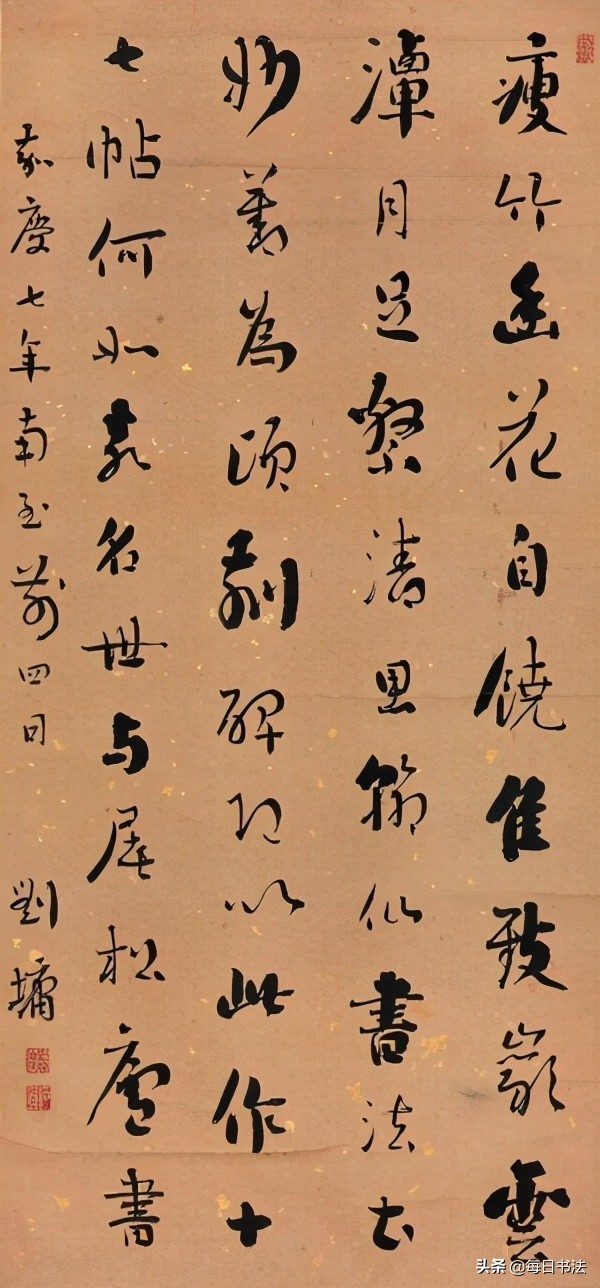 瘦竹幽花自饒佳致巖雲
潭月足繫清思翰仙書法
妙為碑以此作十
七帖何如名世与松廬書
嘉慶七年南至前四日 劉墉
头条 @每日书法